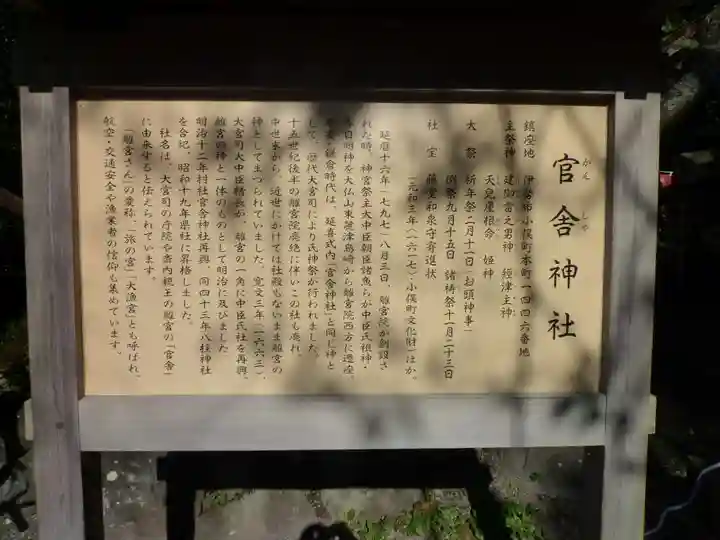 官舎神社
かんしゃ
鎮座地 伊勢市小俣町本町一四四六番地
主祭神 建御雷之男神 経津主神
天児屋根命 姫神
大祭 祈年祭二月十一日(お頭神事)
例祭九月十五日 諸祷祭十一月二十三日
社宝 藤堂和泉守寄進状
(元和三年(一六一七)小俣町文化財)ほか。
延暦十六年(七九七)八月三日、離宮院が創設さ
れた時、神宮祭主大中臣朝臣諸魚らが中臣氏祖神・
春日明神を大仏山東麓津島崎から離宮院西方に遷座。
鎌倉時代は、延喜式内「官舎神社」と同じ神と
して、歴代大宮司により氏神祭が行われました。
十五世紀後半の離宮院廃絶に伴いこの社も廃れ、
中世末から、近世にかけては社殿もないまま離宮の
神としてまつられていました。寛文三年(一六六三)、
大宮司大中臣精長が、離宮の一角に中臣氏社を再興、
離宮の神と一体のものとして明治に及びました。
明治十二年村社官舎神社再興、同四十三年八柱神社
を合祀、昭和十九年県社に昇格しました。
社名は、大宮司の庁院や斎内親王の離宮の「官舎」
に由来すると伝えられています。
「離宮さん」の愛称、「旅の宮」「大漁宮」とも呼ばれ、
航空・交通安全や漁業者の信仰も集めています。